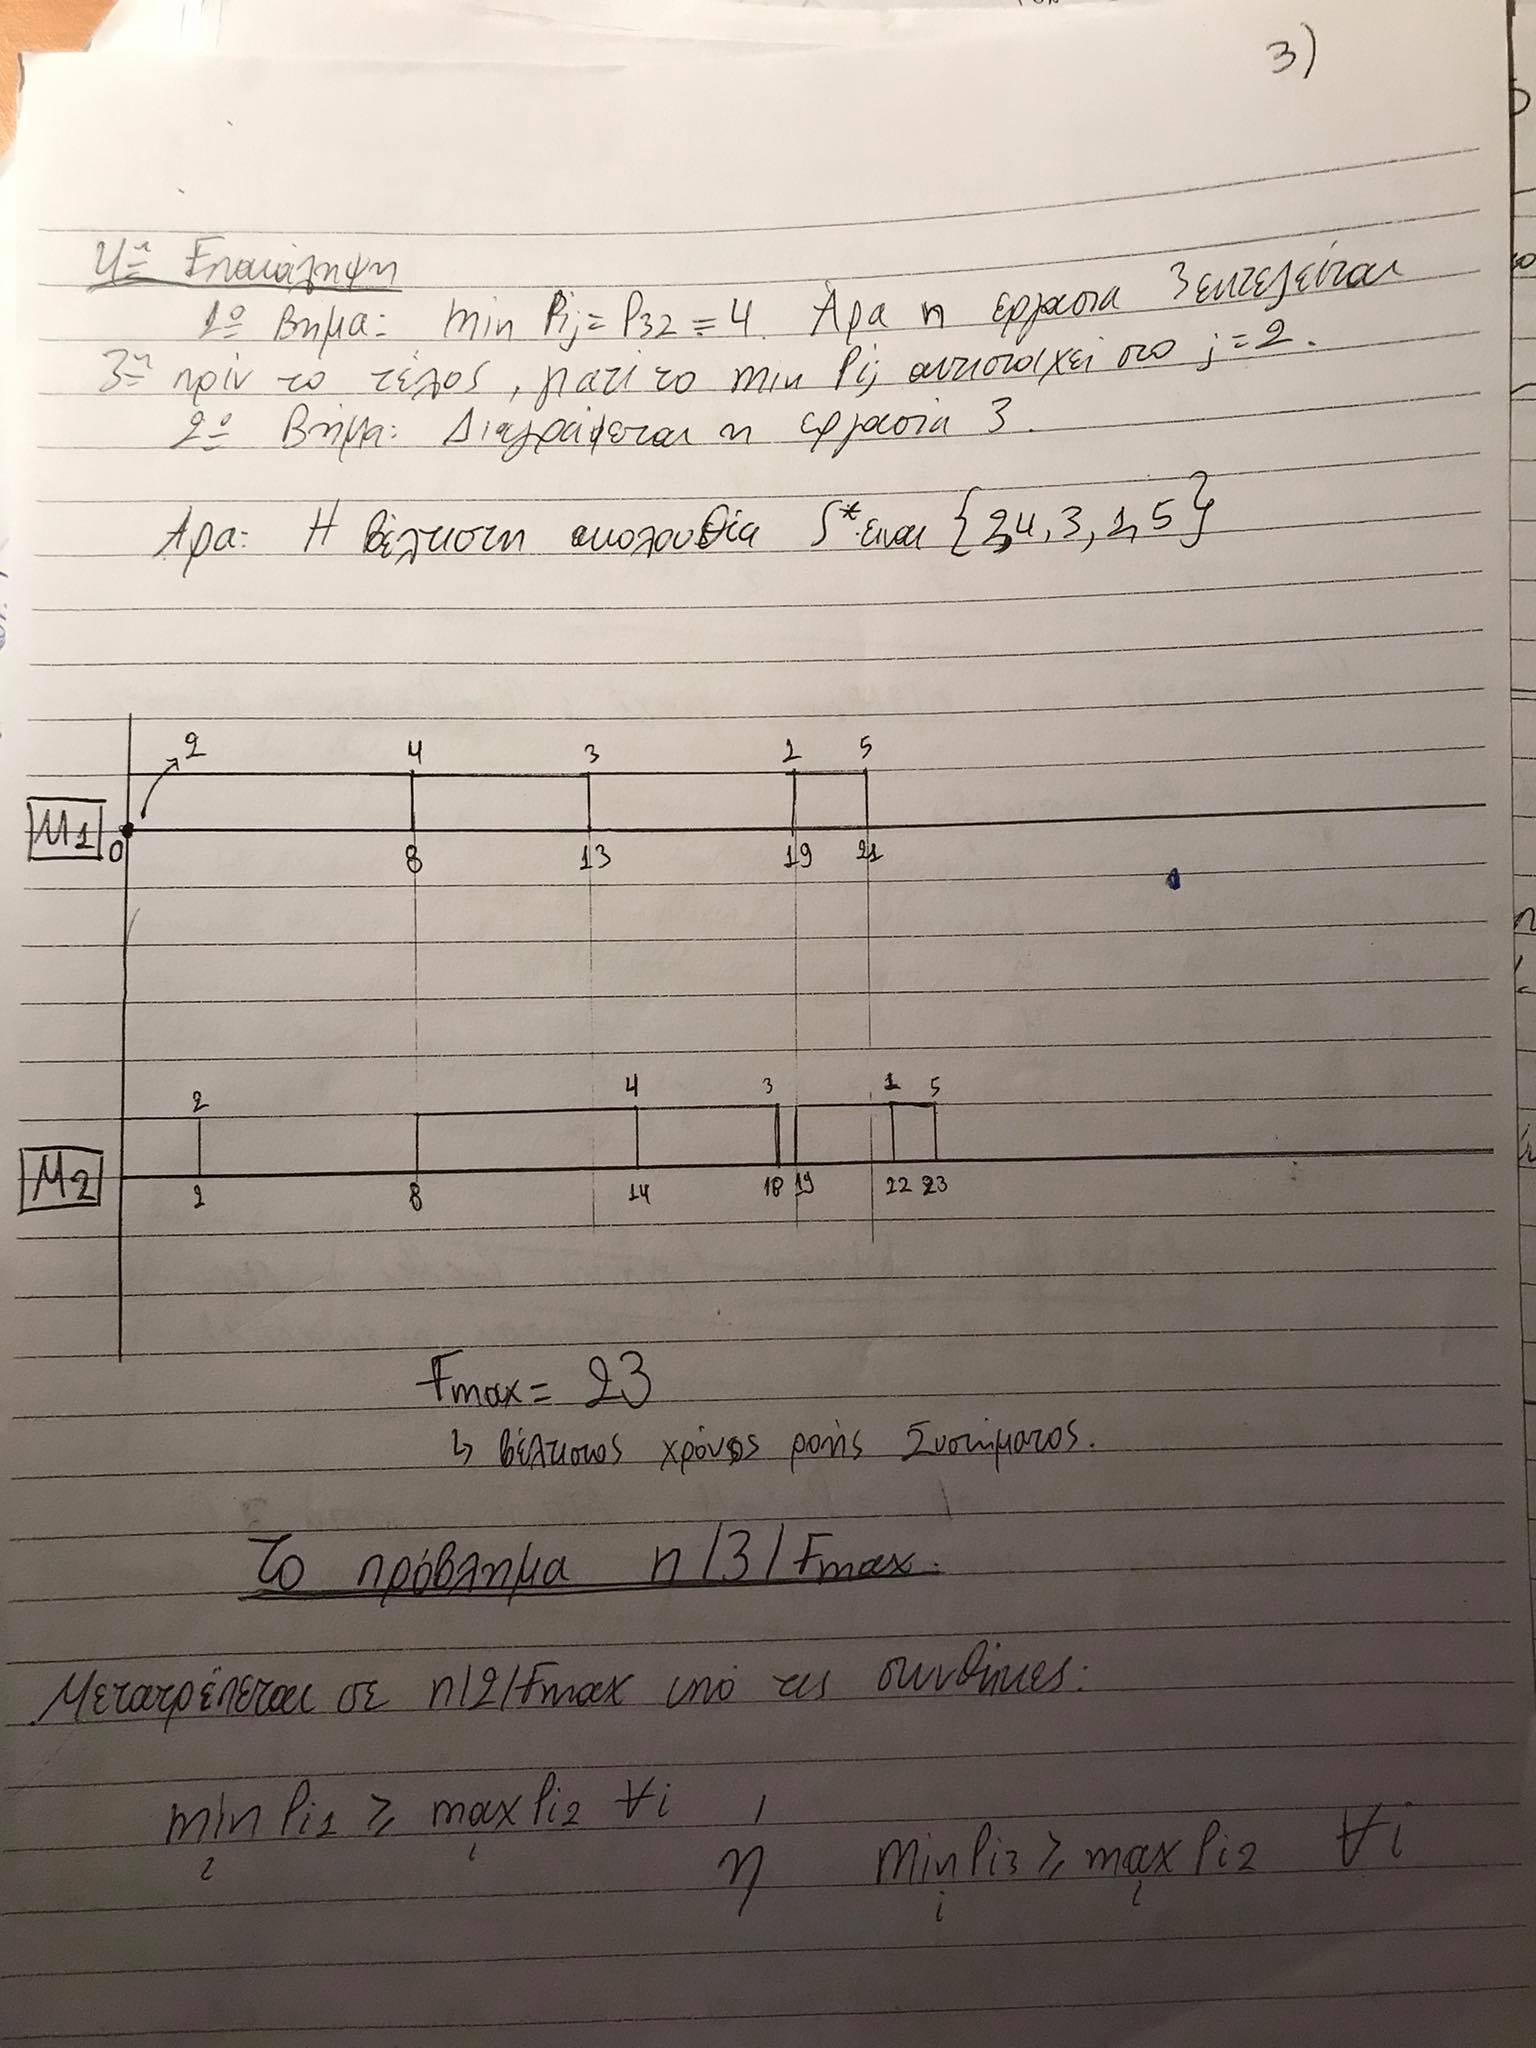 3)
4η Επανάληψη
1ο Βήμα: min Pij = P32 = 4. Άρα η εργασία 3 εκτελείται
3η πρίν το τέλος, γιατί το min Pij αντιστοιχεί στο j = 2.
2ο Βήμα: Διαγράφεται η εργασία 3.
Άρα: Η βέλτιστη ακολουθία S* είναι {2,4,3,1,5}
2 4 3 1 5
M1 0 8 13 19 21
2 4 3 1 5
M2 2 8 14 18 19 22 23
Fmax = 23
↳ βέλτιστος χρόνος ροής Συστήματος.
Το πρόβλημα n/3/Fmax.
Μετατρέπεται σε n/2/Fmax υπό τις συνθήκες:
min Pi1 ≥ max Pi2 ∀i ή min Pi3 ≥ max Pi2 ∀i
i i i i